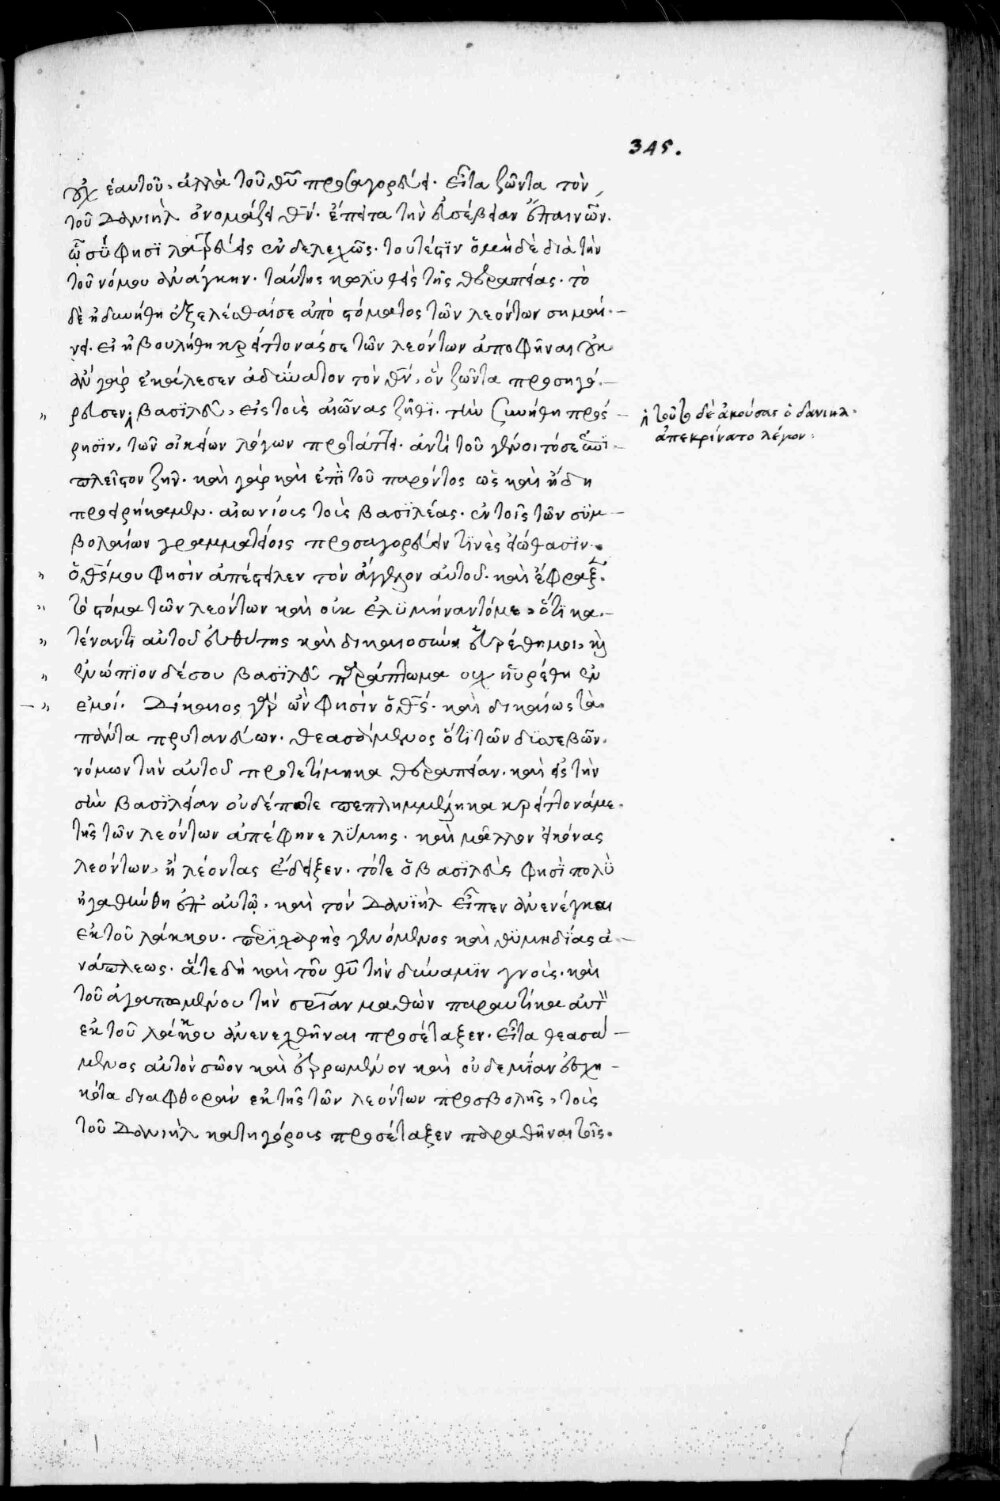 345.
οὐχ ἑαυτοῦ, ἀλλὰ τοῦ θῦ προσαγορεύει. εἶτα ζῶντα τὸν
τοῦ Δανιὴλ ὀνομάζει θν̄. ἔπειτα τὴν εὐσέβειαν ἐπαινῶν.
ᾧ σὺ φησὶ λατρεύεις ἐνδελεχῶς. τουτέστιν ὁ μηδὲ διὰ τὴν
τοῦ νόμου ἀνάγκην. ταύτης κωλυθεὶς τῆς θεραπείας. τὸ
δὲ ἠδυνήθη ἐξελέσθαι σε ἀπὸ στόματος τῶν λεόντων σημαί-
νει. εἰ ἠβουλήθη κρείττονά σε τῶν λεόντων ἀποφῆναι οὐκ
ἂν γὰρ ἐκάλεσεν ἀδύνατον τὸν θν̄, ὃν ζῶντα προσηγό-
ρευσεν, βασιλεῦ, εἰς τοὺς αἰῶνας ζῆθι. τὴν συνήθη πρόσ-
ρησιν, τῶν οἰκείων λόγων προτάττει. ἀντὶ τοῦ γένοιτό σε ἐπὶ
πλεῖστον ζῆν. καὶ γὰρ καὶ ἐπὶ τοῦ παρόντος ὡς καὶ ἤδη
προειρήκαμεν. αἰωνίους τοὺς βασιλέας. ἐν τοῖς τῶν συμ-
βολαίων γραμματείοις προσαγορεύειν τινὲς εἰώθασιν.
ὁ θς̄ μου φησὶν ἀπέστειλεν τὸν ἄγγελον αὐτοῦ. καὶ ἔφραξε
τὸ στόμα τῶν λεόντων καὶ οὐκ ἐλυμήναντό με, ὅτι κα-
τέναντι αὐτοῦ εὐθύτης καὶ δικαιοσύνη εὑρέθη μοι, καὶ
ἐνώπιον δέ σου βασιλεῦ παράπτωμα οὐχ ηὑρέθη ἐν
ἐμοί. Δίκαιος γὰρ ὢν φησὶν ὁ θς̄. καὶ δικαίως τὰ
πάντα πρυτανεύων. θεασάμενος ὅτι τῶν δυσσεβῶν
νόμων τὴν αὐτοῦ προτετίμηκα θεραπείαν. καὶ εἰς τὴν
σὴν βασιλείαν οὐδέποτε πεπλημμέληκα κρείττονά με
τῆς τῶν λεόντων ἀπέφηνε λύμης. καὶ μᾶλλον εἰκόνας
λεόντων, ἢ λέοντας ἔδειξεν. τότε ὁ βασιλεὺς φησὶ πολὺ
ἠγαθύνθη ἐπ' αὐτῷ. καὶ τὸν Δανιὴλ εἶπεν ἀνενέγκαι
ἐκ τοῦ λάκκου. περιχαρὴς γενόμενος καὶ θυμηδίας ἀ-
νάπλεως. ἅτε δὴ καὶ τοῦ θῦ τὴν δύναμιν γνούς. καὶ
τοῦ ἀγαπωμένου τὴν σρίαν μαθὼν παραυτίκα αὐτὸν
ἐκ τοῦ λάκκου ἀνενεχθῆναι προσέταξεν. εἶτα θεασά-
μενος αὐτὸν σῶον καὶ ἐρρωμένον καὶ οὐδεμίαν ἐσχη-
κότα διαφθορὰν ἐκ τῆς τῶν λεόντων προσβολῆς, τοὺς
τοῦ Δανιὴλ κατηγόρους προσέταξεν παραθῆναι τοῖς.
τοῦτο δὲ ἀκούσας ὁ δανιηλ.
ἀπεκρίνατο λέγων: